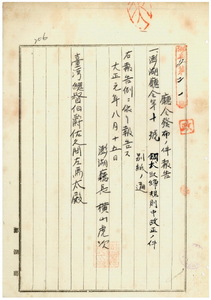 廳令發布ノ件報告
一澎湖廳令第十號 鑛夫取締規則中改正ノ件
別紙ノ通
右報告例ニ依リ報告ス
大正元年八月十五日
澎湖廳長 橫山虎次
臺灣總督伯爵佐久間左馬太殿